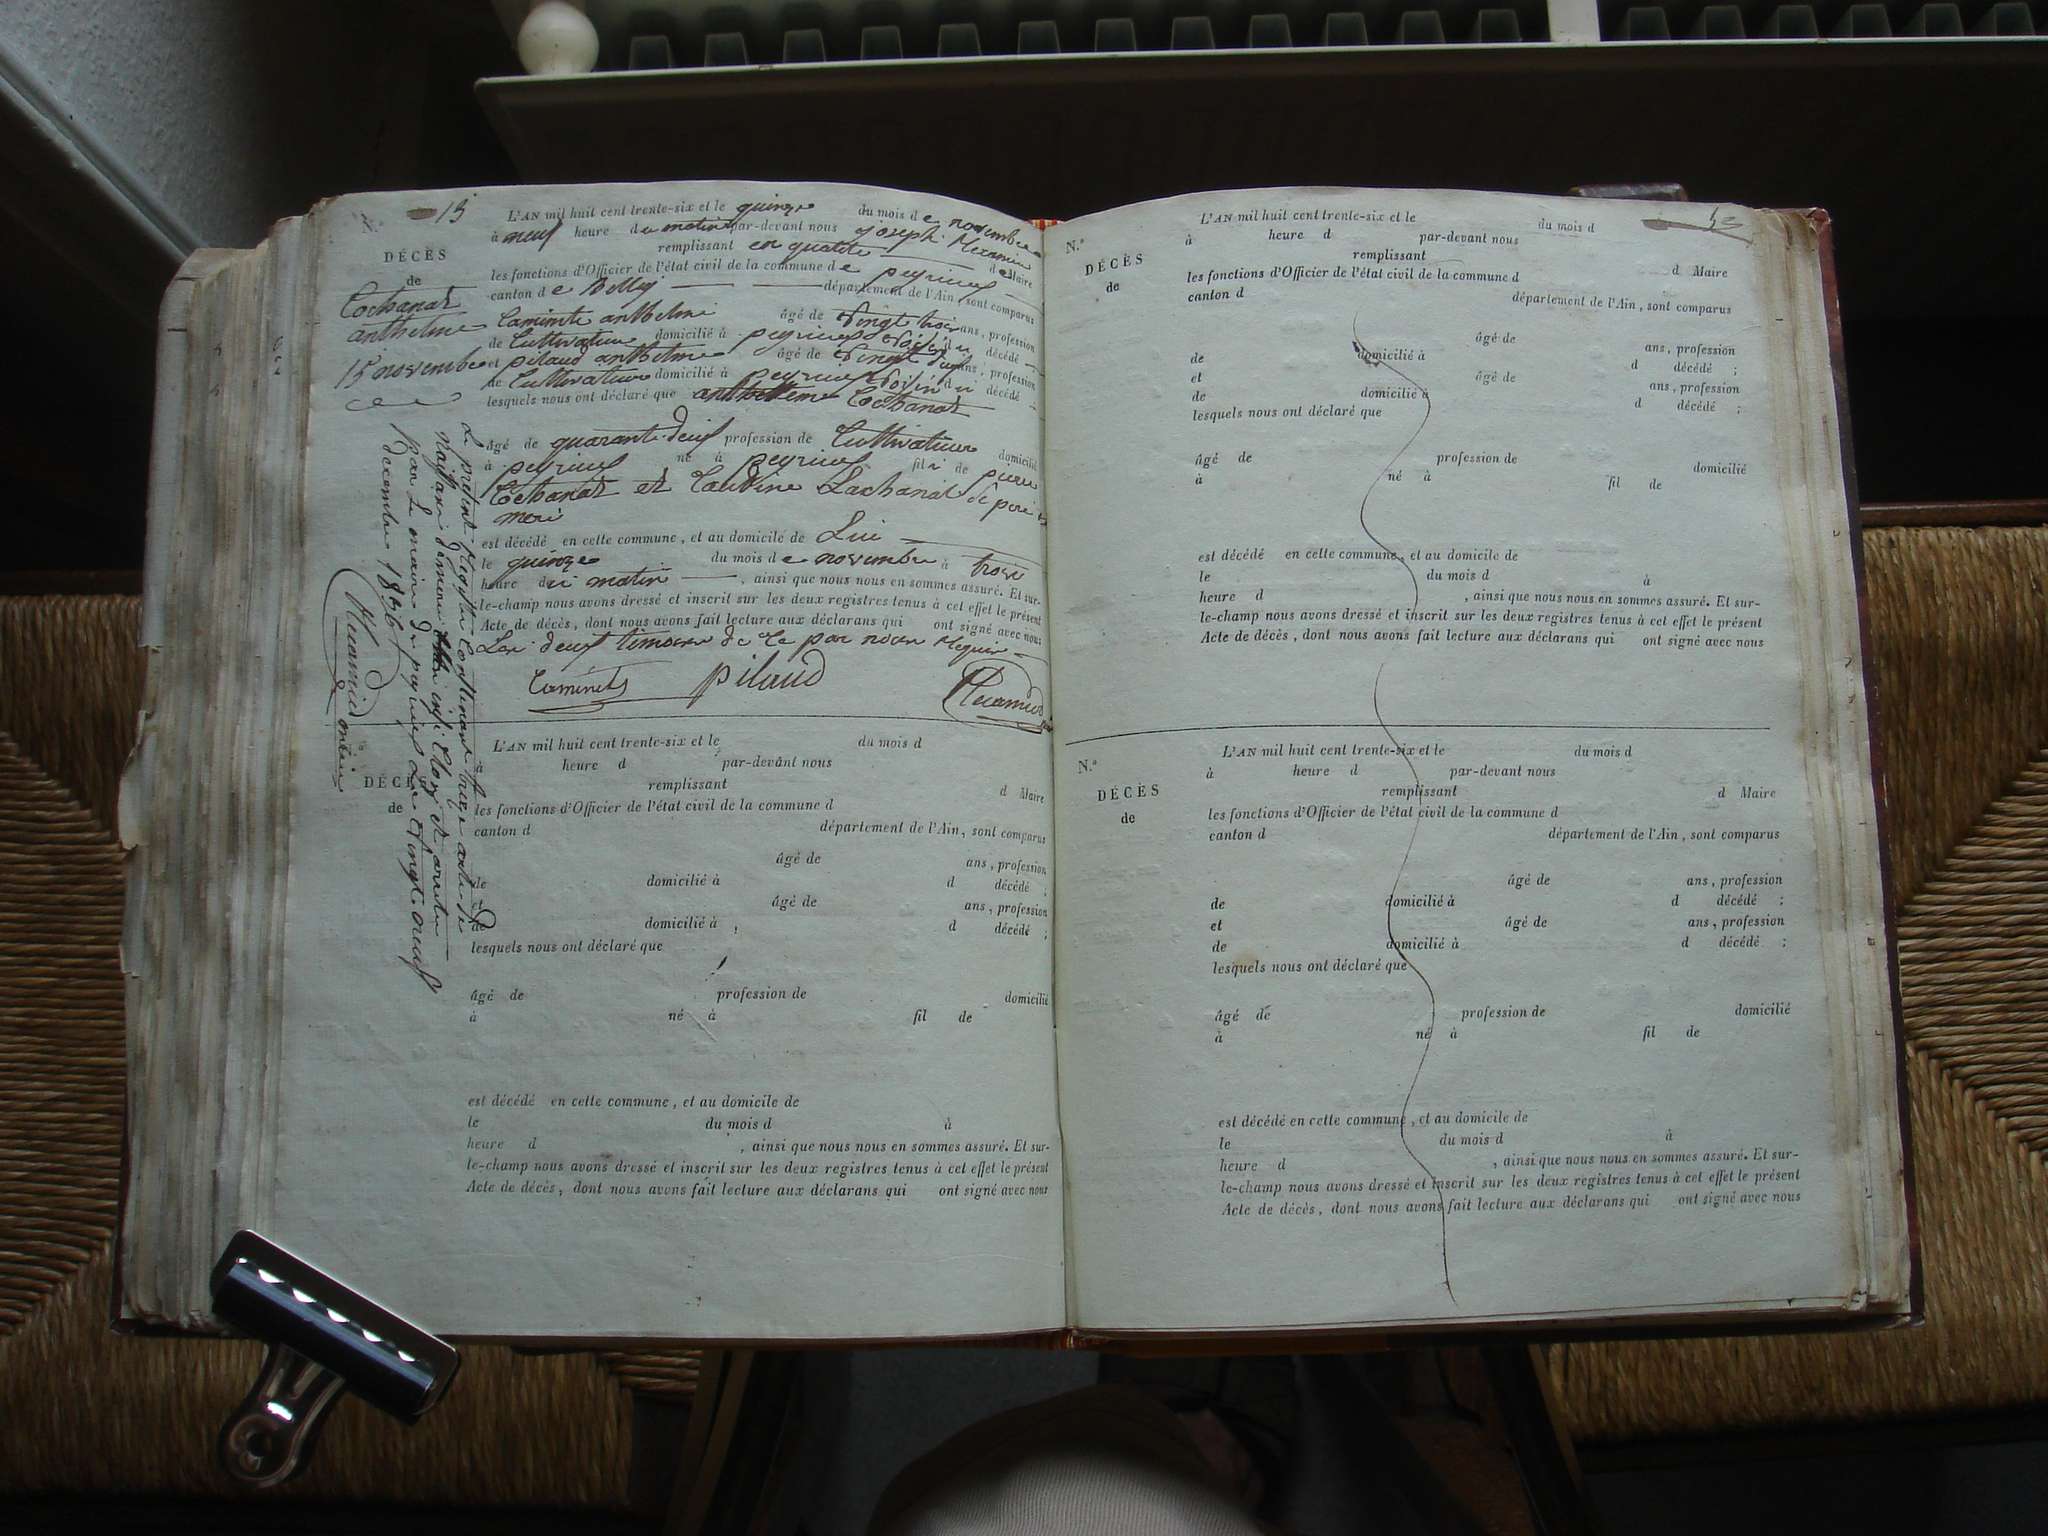 N.° 13
DÉCÈS
de
Cochanat
anthelme
15 novembre
L'AN mil huit cent trente-six et le quinze du mois de novembre
à neuf heure du matin par-devant nous joseph
remplissant en qualité de Maire
les fonctions d'Officier de l'état civil de la commune de peyrieu
canton de Belley département de l'Ain, sont comparus
anthelme âgé de vingt trois ans, profession
de Cultivateur domicilié à peyrieu voisin du décédé
et pilaud anthelme âgé de vingt ans, profession
de Cultivateur domicilié à peyrieu voisin du décédé
lesquels nous ont déclaré que anthelme Cochanat
âgé de quarante deux profession de Cultivateur domicilié
à peyrieu né à peyrieu fils de pierre
Cochanat et Claudine Lachanal ses pere et
mere
est décédé en cette commune, et au domicile de Lui
le quinze du mois de novembre à trois
heure du matin, ainsi que nous nous en sommes assuré. Et sur-
le-champ nous avons dressé et inscrit sur les deux registres tenus à cet effet le présent
Acte de décès, dont nous avons fait lecture aux déclarans qui ont signé avec nous
Les deux temoins de ce par nous requis
pilaud
Le présent Registre Contenant treize actes de
par Le maire de peyrieu Le vingt neuf
decembre 1836
maire
L'AN mil huit cent trente-six et le du mois d
à heure d par-devant nous
remplissant d Maire
DÉCÈS
de
les fonctions d'Officier de l'état civil de la commune d
canton d département de l'Ain, sont comparus
âgé de ans, profession
de domicilié à d décédé ;
et âgé de ans, profession
de domicilié à d décédé ;
lesquels nous ont déclaré que
âgé de profession de domicilié
à né à fil de
est décédé en cette commune, et au domicile de
le du mois d à
heure d , ainsi que nous nous en sommes assuré. Et sur-
le-champ nous avons dressé et inscrit sur les deux registres tenus à cet effet le présent
Acte de décès, dont nous avons fait lecture aux déclarans qui ont signé avec nous
N.°
DÉCÈS
de
L'AN mil huit cent trente-six et le du mois d
à heure d par-devant nous
remplissant d Maire
les fonctions d'Officier de l'état civil de la commune d
canton d département de l'Ain, sont comparus
âgé de ans, profession
de domicilié à d décédé ;
et âgé de ans, profession
de domicilié à d décédé ;
lesquels nous ont déclaré que
âgé de profession de domicilié
à né à fil de
est décédé en cette commune, et au domicile de
le du mois d à
heure d , ainsi que nous nous en sommes assuré. Et sur-
le-champ nous avons dressé et inscrit sur les deux registres tenus à cet effet le présent
Acte de décès, dont nous avons fait lecture aux déclarans qui ont signé avec nous
N.°
DÉCÈS
de
L'AN mil huit cent trente-six et le du mois d
à heure d par-devant nous
remplissant d Maire
les fonctions d'Officier de l'état civil de la commune d
canton d département de l'Ain, sont comparus
âgé de ans, profession
de domicilié à d décédé ;
et âgé de ans, profession
de domicilié à d décédé ;
lesquels nous ont déclaré que
âgé de profession de domicilié
à né à fil de
est décédé en cette commune, et au domicile de
le du mois d à
heure d , ainsi que nous nous en sommes assuré. Et sur-
le-champ nous avons dressé et inscrit sur les deux registres tenus à cet effet le présent
Acte de décès, dont nous avons fait lecture aux déclarans qui ont signé avec nous